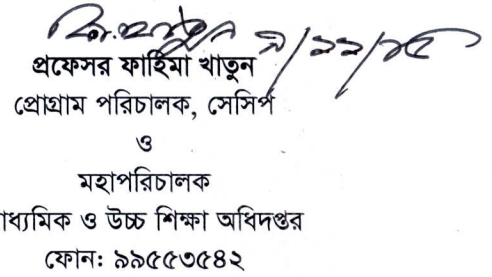 ৯/১১/১৫
প্রফেসর ফাহিমা খাতুন
প্রোগ্রাম পরিচালক, সেসিপ
ও
মহাপরিচালক
ধ্যমিক ও উচ্চ শিক্ষা অধিদপ্তর
ফোন: ৯৯৫৫৩৫৪২